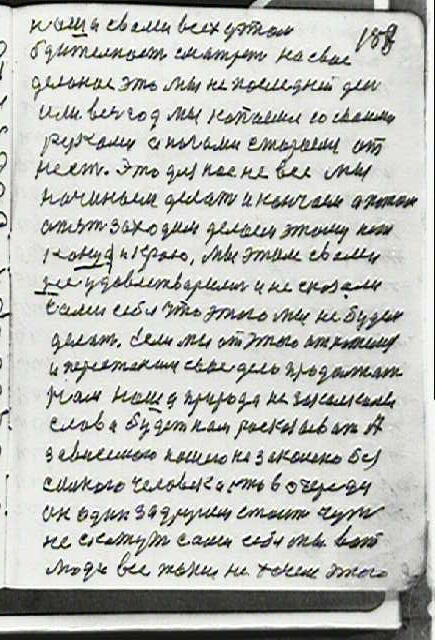 наша с вами всех у том 188
бдительност смотреть на свое
дельное это мы не последней ден
или весь год мы копаемся со своими
руками и ногами стараемся от
нест. Это для нас не все мы
начинаем делать и кончаем а потом
опят заходим делаем этому нет
конца и краю, мы этим с вами
не удовлетварилис и не сказали
сами себя что этого мы не будем
делать. Если мы от этого откажимся
и перестанем свое дело продолжать
нам наша природа не
слова будет нам росказоват А
зависемого нашего не законано без
силного человека есть в очереди
он один за другим стоит чут
не скажут сами себя мы вот
люди все такие не хочем этого